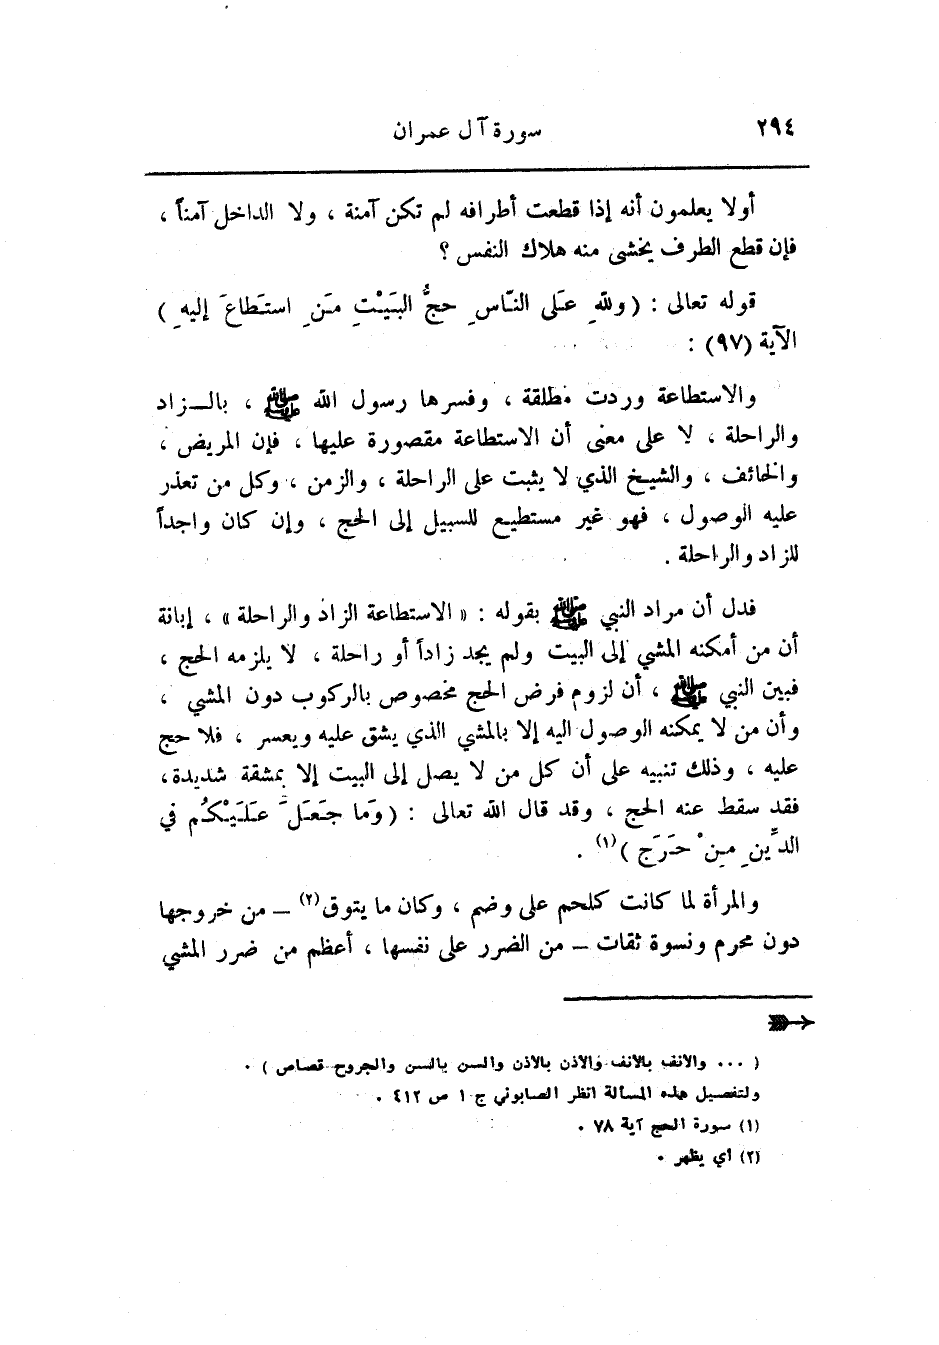 ٢٩٤
سورة آل عمران
أولا يعلمون أنه إذا قطعت أطرافه لم تكن آمنة ، ولا الداخل آمناً ،
فإن قطع الطرف يخشى منه هلاك النفس ؟
قوله تعالى : ( وللهِ عَلى النّاسِ حجُّ البَيْتِ مَنِ استَطاعَ إليهِ )
الآية (٩٧) :
والاستطاعة وردت مطلقة ، وفسرها رسول الله ﷺ ، بالـزاد
والراحلة ، لا على معنى أن الاستطاعة مقصورة عليها ، فإن المريض ،
والخائف ، والشيخ الذي لا يثبت على الراحلة ، والزمن ، وكل من تعذر
عليه الوصول ، فهو غير مستطيع للسبيل إلى الحج ، وإن كان واجداً
للزاد والراحلة .
فدل أن مراد النبي ﷺ بقوله : « الاستطاعة الزاد والراحلة » ، إبانة
أن من أمكنه المشي إلى البيت ولم يجد زاداً أو راحلة ، لا يلزمه الحج ،
فبين النبي ﷺ ، أن لزوم فرض الحج مخصوص بالركوب دون المشي ،
وأن من لا يمكنه الوصول اليه إلا بالمشي الذي يشق عليه ويعسر ، فلا حج
عليه ، وذلك تنبيه على أن كل من لا يصل إلى البيت إلا بمشقة شديدة،
فقد سقط عنه الحج ، وقد قال الله تعالى : ( وَما جَعَلَ عَلَيْكُم في
الدِّينِ مِنْ حَرَج )(١) .
والمرأة لما كانت كلحم على وضم ، وكان ما يتوق(٢) – من خروجها
دون محرم ونسوة ثقات – من الضرر على نفسها ، أعظم من ضرر المشي
( ... والانف بالانف والاذن بالاذن والسن بالسن والجروح قصاص ) .
ولتفصيل هذه المسالة انظر الصابوني ج ١ ص ٤١٢ .
(١) سورة الحج آية ٧٨ .
(٢) أي يظهر .